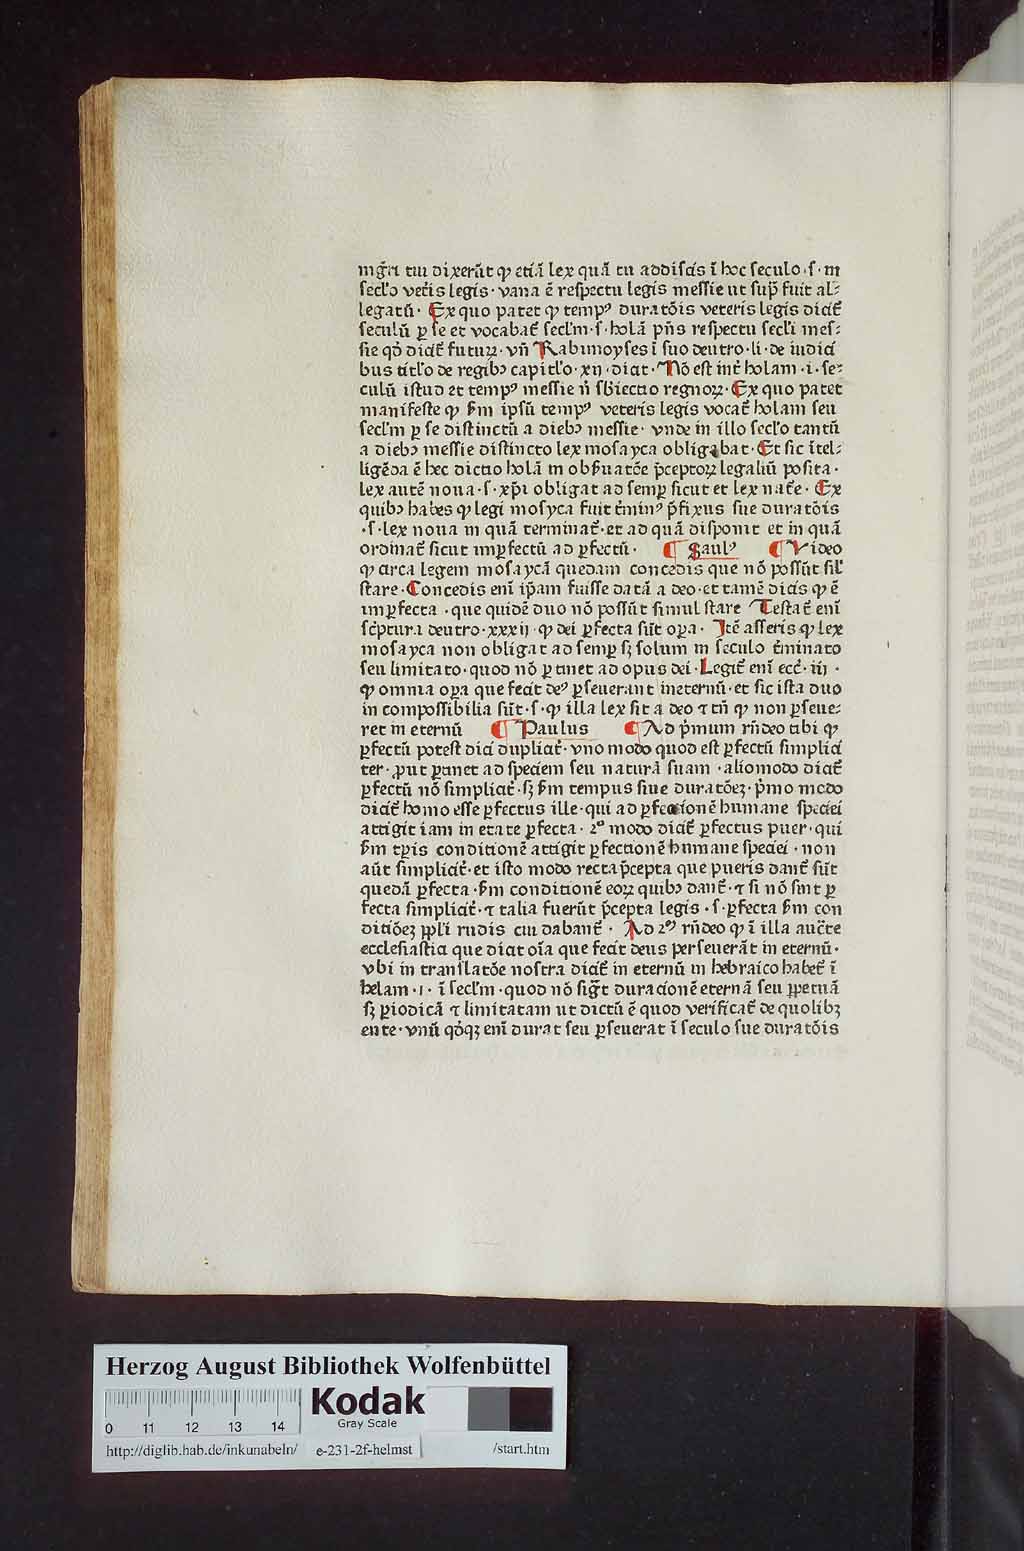 mgr̃i tui dixerũt ꝙ etiã lex quã tu addiſcis ĩ hoc ſeculo·ſ·in
ſecl̃o vet̃is legis·vana ẽ reſpectu legis meſſie ut ſup̃ fuit al⸗
legatũ· Ex quo patet ꝙ tempꝰ duratõis veteris legis dicit̃
ſeculũ ꝑ ſe et vocabat̃ ſecl̃m·ſ·holã p̃ns reſpectu ſecl̃i meſ⸗
ſie qđ dicit̃ futuꝝ·vñ Rabimoyſes ĩ ſuo deutro·li·de iudici
bus titl̃o de regibꝫ capitl̃o·xij·dicit·Nõ eſt int̃ holam·i·ſe⸗
culũ iſtud et tempꝰ meſſie ñ ſb̃iectio regnoꝝ·Ex quo patet
manifeſte ꝙ ſm̃ ipſũ tempꝰ veteris legis vocat̃ holam ſeu
ſecl̃m ꝑ ſe diſtinctũ a diebꝫ meſſie· vnde in illo ſecl̃o tantũ
a diebꝫ meſſie diſtincto lex moſayca obligabat·Et ſic ĩtel⸗
ligẽda ẽ hec dictio holã in obſuatõe p̃ceptoꝝ legaliũ poſita·
lex autẽ noua·ſ·xp̃i obligat ad ſemꝑ ſicut et lex nat̃e· Ex
quibꝫ habes ꝙ legi moſyca fuit t̃minꝰ p̃fixus ſue duratõis
·ſ·lex noua in quã terminat̃·et ad quã diſponit et in quã
ordinat̃ ſicut imꝑfectũ ad ꝑfectũ· ¶ Saulꝰ ¶ Video
ꝙ circa legem moſaycã quedam concedis que nõ poſſũt ſil̃
ſtare·Concedis enĩ ip̃am fuiſſe datã a deo·et tamẽ dicis ꝙ ẽ
imꝑfecta·que quidẽ duo nõ poſſũt ſimul ſtare Teſtat̃ enĩ
ſc̃ptura deutro·xxxij·ꝙ dei ꝑfecta ſũt oꝑa· Itẽ aſſeris ꝙ lex
moſayca non obligat ad ſemꝑ ſꝫ ſolum in ſeculo t̃minato
ſeu limitato·quod nõ ꝑtinet ad opus dei·Legit̃ enĩ ecc̃·iij·
ꝙ omnia oꝑa que fecit deꝰ ꝑſeuerant ineternũ·et ſic iſta duo
in compoſſibilia ſũt·ſ·ꝙ illa lex ſit a deo ⁊ tñ ꝙ non ꝑſeue⸗
ret in eternũ ¶ Paulus ¶ Ad p̃mum rñdeo tibi ꝙ
ꝑfectũ poteſt dici duplicit̃·vno modo quod eſt ꝑfectũ ſimplici
ter·ꝓut ꝑtinet ad ſpeciem ſeu naturã ſuam·aliomodo dicit̃
ꝑfectũ nõ ſimplicit̃·ſꝫ ſm̃ tempus ſiue duratõeꝫ·p̃mo modo
dicit̃ homo eſſe ꝑfectus ille·qui ad ꝑfectionẽ humane ſpeciei
attigit iam in etate ꝑfecta·2º modo dicit̃ ꝑfectus puer·qui
ſm̃ tꝑis conditionẽ attigit ꝑfectionẽ humane ſpeciei·non
aũt ſimplicit̃·et iſto modo recta p̃cepta que pueris dant̃ ſũt
quedã ꝑfecta·ſm̃ conditionẽ eoꝝ quibꝫ dant̃·⁊ ſi nõ ſint ꝑ
fecta ſimplicit̃·⁊ talia fuerũt p̃cepta legis·ſ·ꝑfecta ſm̃ con
ditiõeꝫ ppl̃i rudis cui dabant̃· Ad 2ᵐ rñdeo ꝙ ĩ illa auct̃e
eccleſiaſtici que dicit oĩa que fecit deus perſeuerãt in eternũ·
vbi in tranſlatõe noſtra dicit̃ in eternũ in hebraico habet̃ ĩ
helam·i·ĩ ſecl̃m·quod nõ ſigt̃ duracionẽ eternã ſeu ꝑpetuã
ſꝫ ꝑiodicã ⁊ limitatam ut dictũ ẽ quod verificat̃ de quolibꝫ
ente·vnũ qđqꝫ enĩ durat ſeu ꝑſeuerat ĩ ſeculo ſue duratõis
Herzog August Bibliothek Wolfenbüttel
Kodak
Gray Scale
0 11 12 13 14
http://diglib.hab.de/inkunabeln/ e-231-2f-helmst /start.htm